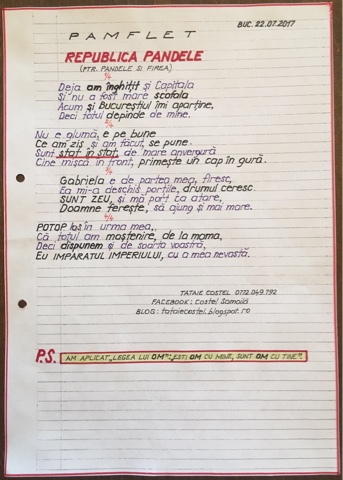 BUC. 22.07.2017
PAMFLET
REPUBLICA PANDELE
(PTR. PANDELE SI FIREA)
1/4
Deja am înghițit și Capitala
Și nu a fost mare scofala
Acum și Bucureștiul îmi aparține,
Deci totul depinde de mine.
2/4
Nu e glumă, e pe bune
Ce am zis și am făcut, se pune.
Sunt stat în stat, de mare anvergură
Cine mișcă în front, primește un cap în gură.
3/4
Gabriela e de partea mea, firesc,
Ea mi-a deschis porțile, drumul ceresc.
SUNT ZEU, și mă port ca atare,
Doamne ferește, să ajung și mai mare.
4/4
POTOP las în urma mea,
Că totul am moștenire, de la mama,
Deci dispunem și de soarta voastră,
Eu IMPĂRATUL IMPERIULUI, cu a mea nevastă.
TATAIE COSTEL 0772.049.792
FACEBOOK: Costel Samoilă
BLOG: tataiecostel.blogspot.ro
P.S. AM APLICAT „LEGEA LUI OM": „EȘTI OM CU MINE, SUNT OM CU TINE".